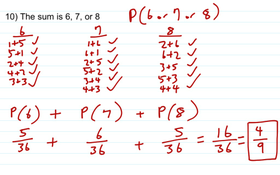 10) The sum is 6, 7, or 8 P(6 or 7 or 8)
6 7 8
1+5 ✓ 1+6 ✓ 2+6 ✓
5+1 ✓ 6+1 ✓ 6+2 ✓
2+4 ✓ 2+5 ✓ 3+5 ✓
4+2 ✓ 5+2 ✓ 5+3 ✓
3+3 ✓ 3+4 ✓ 4+4 ✓
4+3 ✓
P(6) + P(7) + P(8)
5/36 + 6/36 + 5/36 = 16/36 = 4/9